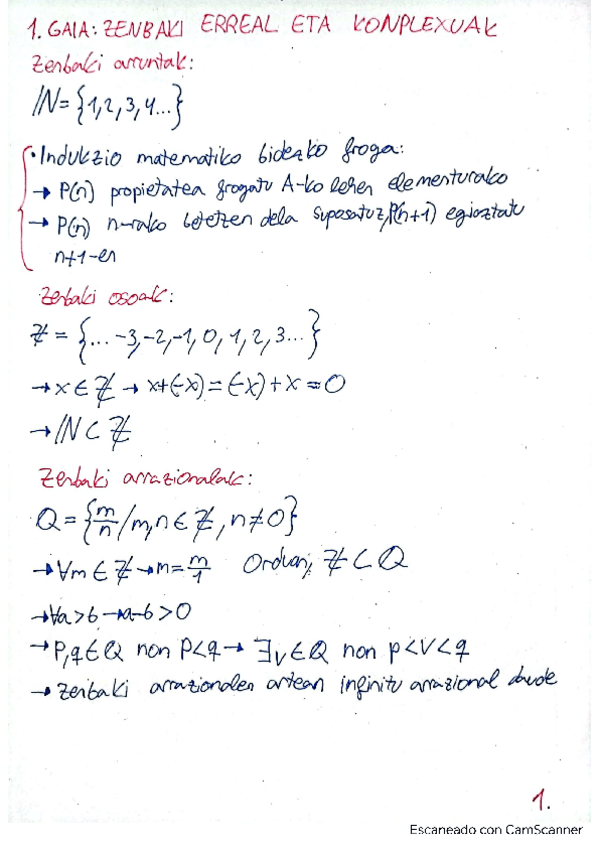 1. GAIA: ZENBAKI ERREAL ETA KONPLEXUAK
Zenbaki arruntak:
ℕ = {1,2,3,4...}
· Indukzio matematiko bidezko froga:
→ P(n) propietatea frogatu A-ko lehen elementurako
→ P(n) n-rako betetzen dela suposatuz, P(n+1) egiaztatu
n+1-en
Zenbaki osoak:
ℤ = {... -3,-2,-1, 0, 1, 2, 3...}
→ x ∈ ℤ → x+(-x) = (-x)+x = 0
→ ℕ ⊂ ℤ
Zenbaki arrazionalak:
Q = {m/n / m,n ∈ ℤ, n≠0}
→ ∀m ∈ ℤ → m = m/1 Orduan, ℤ ⊂ Q
→ ∀a > b → a-b > 0
→ P,q ∈ Q non P<q → ∃v ∈ Q non p<v<q
→ Zenbaki arrazionalen artean infinitu arrazional daude
1.
Escaneado con CamScanner